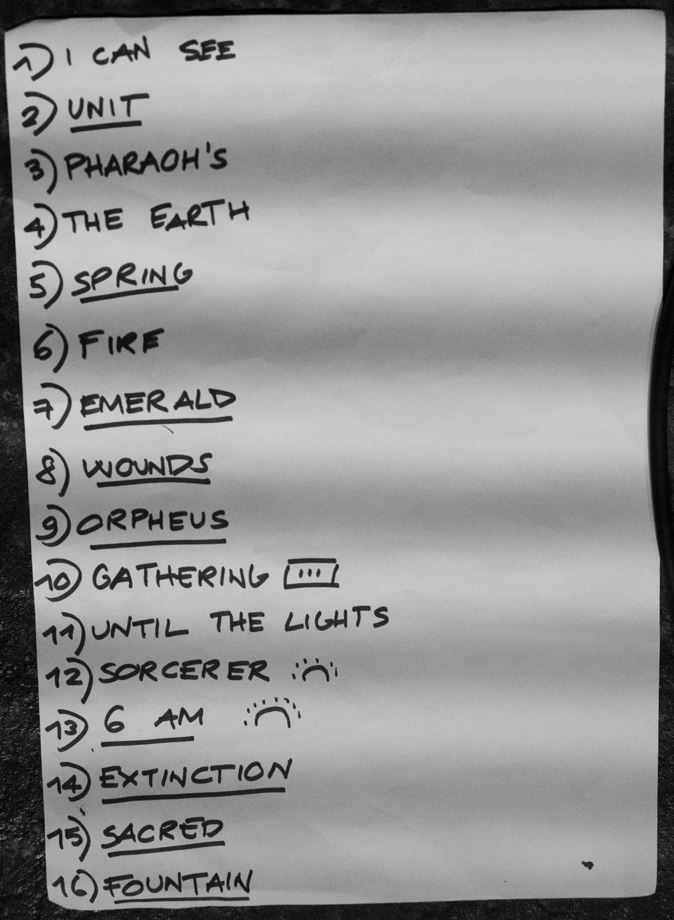 1) I CAN SEE
2) UNIT
3) PHARAOH'S
4) THE EARTH
5) SPRING
6) FIRE
7) EMERALD
8) WOUNDS
9) ORPHEUS
10) GATHERING
11) UNTIL THE LIGHTS
12) SORCERER
13) 6 AM
14) EXTINCTION
15) SACRED
16) FOUNTAIN